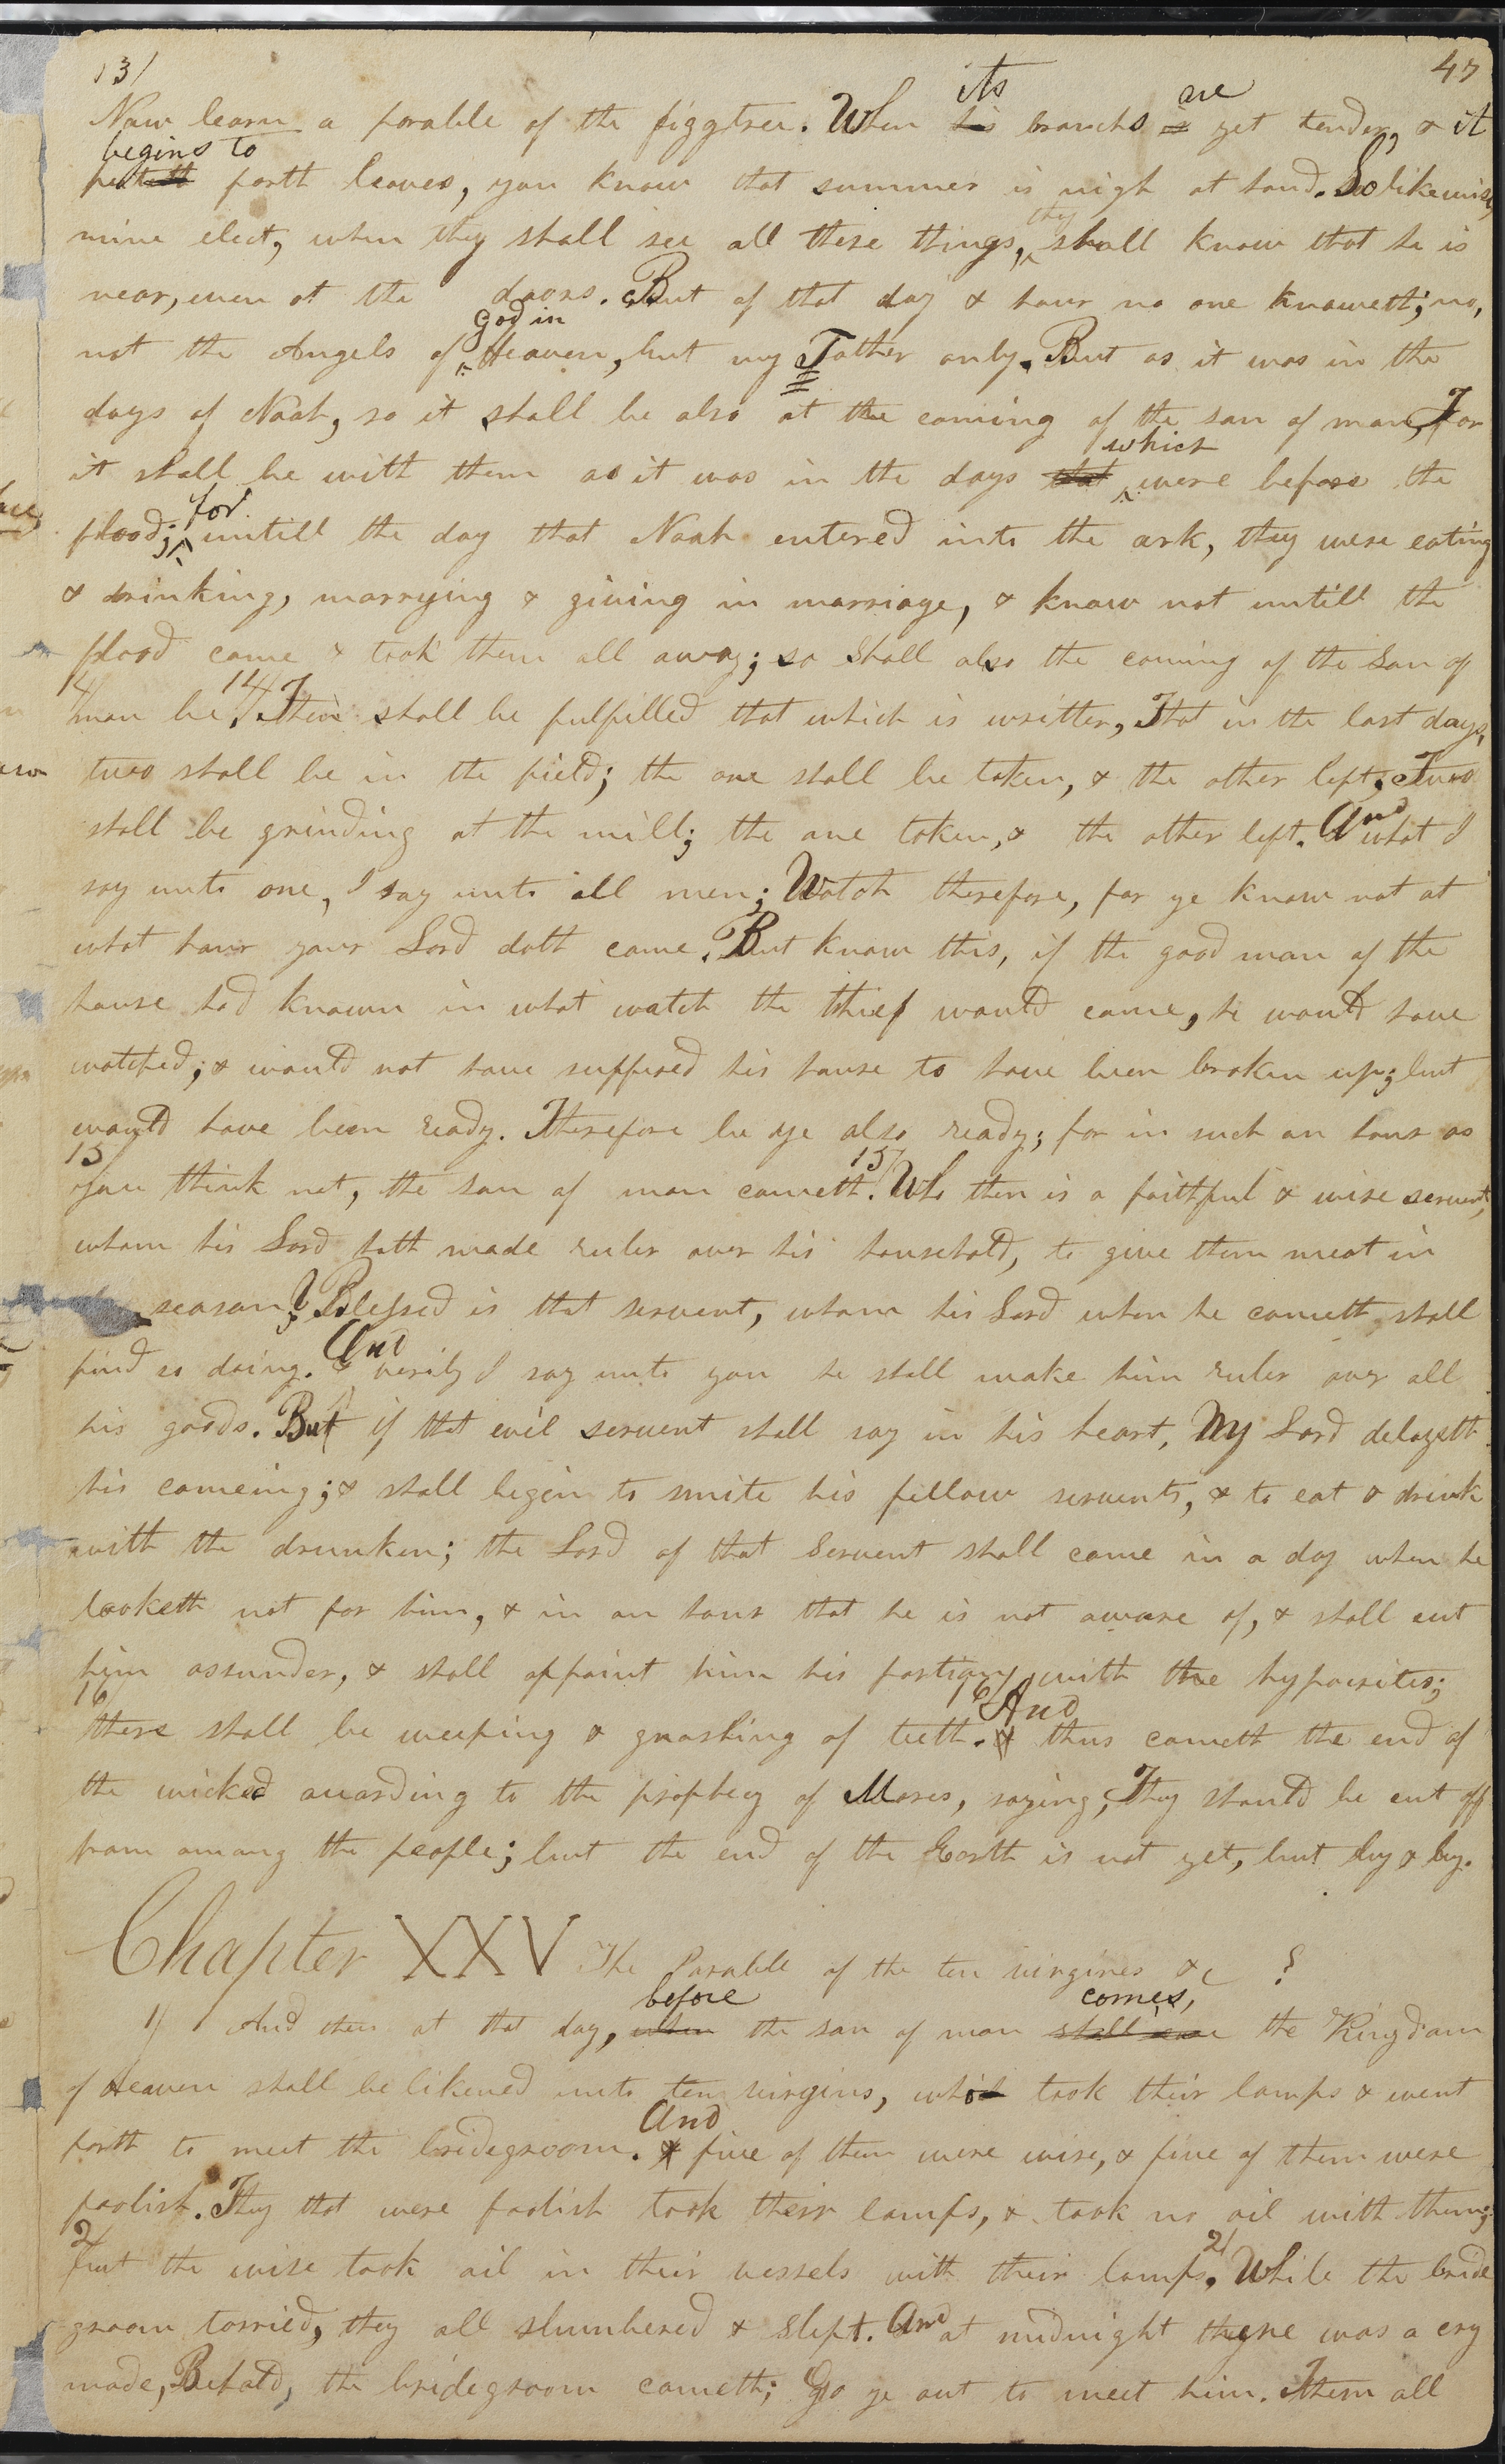 13/ 47
Now learn a parable of the figgtree. When his its branchs is are yet tender, & it
putteth begins to forth leaves, you know that summer is nigh at hand. So likewise,
mine elect, when they shall see all these things, they shall know that he is
near, even at the doors. But of that day & hour no one knoweth; no,
not the Angels of God in Heaven, but my Father only. But as it was in the
days of Noah, so it shall be also at the coming of the son of man, For
it shall be with them as it was in the days that which were before the
flood; for untill the day that Noah entered into the ark, they were eating
& drinking, marrying & giving in marriage, & know not untill the
flood came & took them all away; so shall also the coming of the Son of
14/ man be. 14/ Then shall be fulfilled that which is written, That in the last days,
two shall be in the field; the one shall be taken, & the other left; Two
shall be grinding at the mill; the one taken, & the other left. And what I
say unto one, I say unto all men; Watch therefore, for ye know not at
what hour your Lord doth come. But know this, if the good man of the
house had known in what watch the thief would come, he would have
watched; & would not have suffered his house to have been broken up; but
would have been ready. Therefore be ye also ready; for in such an hour as
15 you think not, the son of man cometh. 15/ Who then is a faithful & wise servent,
whom his Lord hath made ruler over his household, to give them meat in
season? Blessed is that servent, whom his Lord when he cometh, shall
find so doing. & And verily I say unto you he shall make him ruler over all
his goods. But if that evil servent shall say in his heart, My Lord delayeth
his comeing; & shall begin to smite his fellow servents, & to eat & drink
with the drunken; the Lord of that Servent shall come in a day when he
looketh not for him, & in an hour that he is not aware of, & shall cut
him assunder, & shall appoint him his portion with the hypocrites;
16 there shall be weeping & gnashing of teeth. 16/ & And thus cometh the end of
the wicked according to the prophecy of Moses, saying, They should be cut off
from among the people; but the end of the Earth is not yet, but by & by.
Chapter XXV The Parable of the ten virgines &c
1/ And then at that day, when before the son of man shall come comes, the Kingdom
of Heaven shall be likened unto ten virgins, who took their lamps & went
forth to meet the bridegroom. & And five of them were wise, & five of them were
foolish. They that were foolish took their lamps, & took no oil with them;
2/ but the wise took oil in their vessels with their lamps. 2/ While the bride
groom tarried, they all slumbered & slept. And at midnight there was a cry
made, Behold, the bridegroom cometh; Go ye out to meet him. Then all